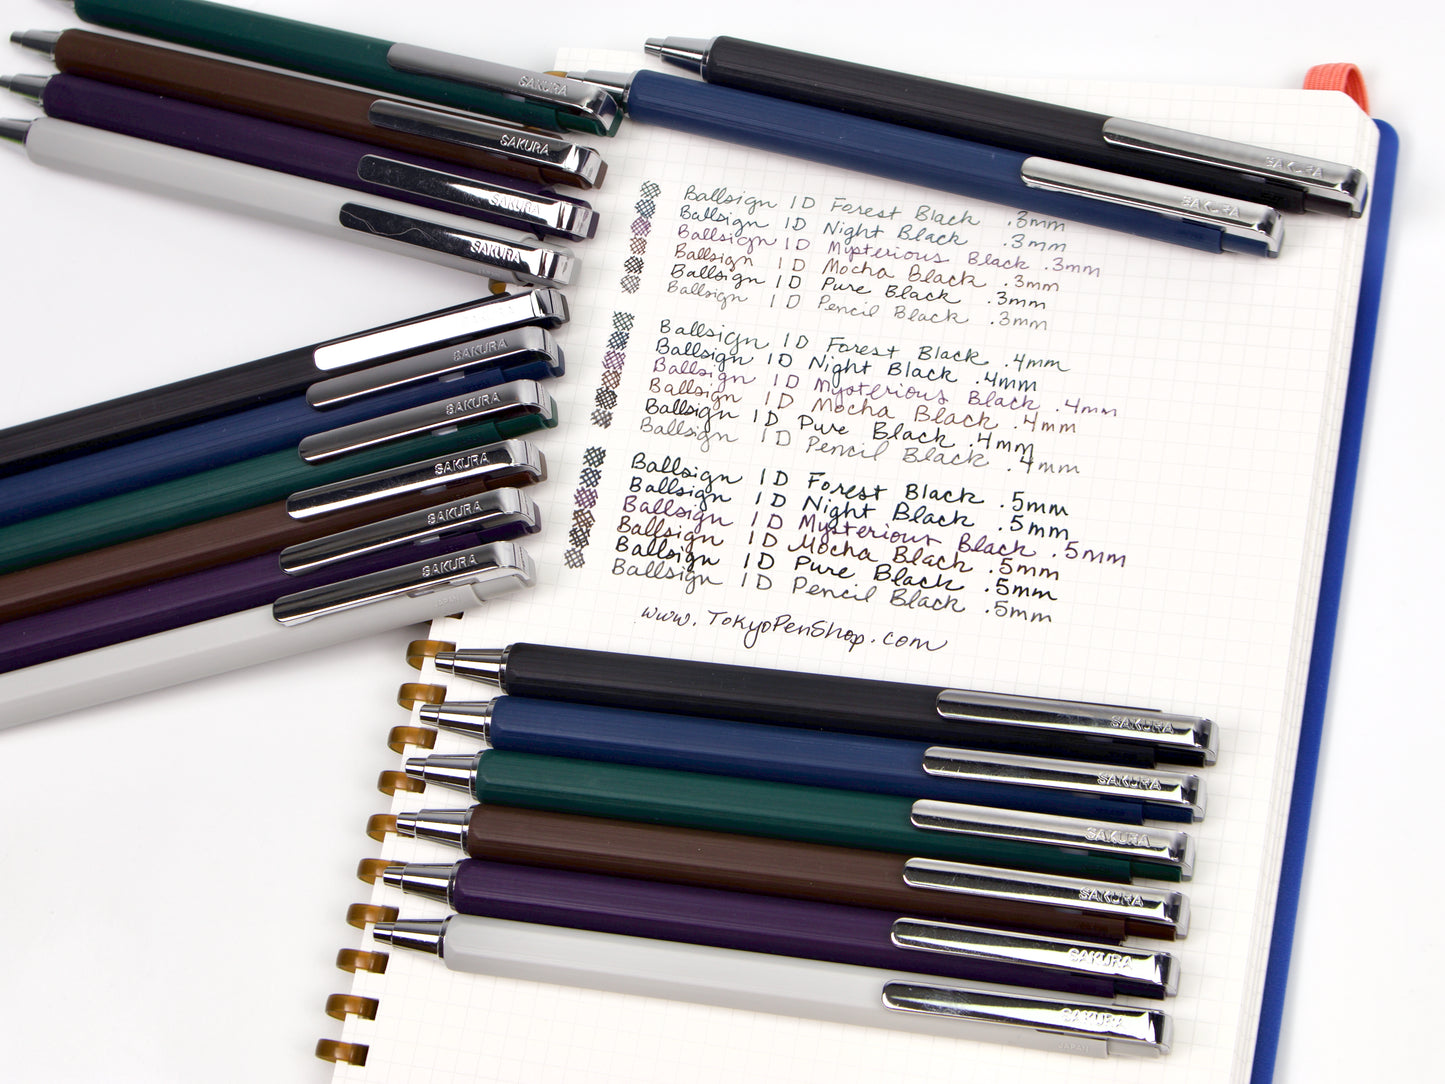 SAKURA
SAKURA
SAKURA
SAKURA
SAKURA
SAKURA
Ballsign ID Forest Black .3mm
Ballsign ID Night Black .3mm
Ballsign ID Mysterious Black .3mm
Ballsign ID Mocha Black .3mm
Ballsign ID Pure Black .3mm
Ballsign ID Pencil Black .3mm
Ballsign ID Forest Black .4mm
Ballsign ID Night Black .4mm
Ballsign ID Mysterious Black .4mm
Ballsign ID Mocha Black .4mm
Ballsign ID Pure Black .4mm
Ballsign ID Pencil Black .4mm
Ballsign ID Forest Black .5mm
Ballsign ID Night Black .5mm
Ballsign ID Mysterious Black .5mm
Ballsign ID Mocha Black .5mm
Ballsign ID Pure Black .5mm
Ballsign ID Pencil Black .5mm
www.TokyoPenShop.com
SAKURA
SAKURA
SAKURA
SAKURA
SAKURA
JAPAN
SAKURA
SAKURA
SAKURA
SAKURA
SAKURA
SAKURA
JAPAN